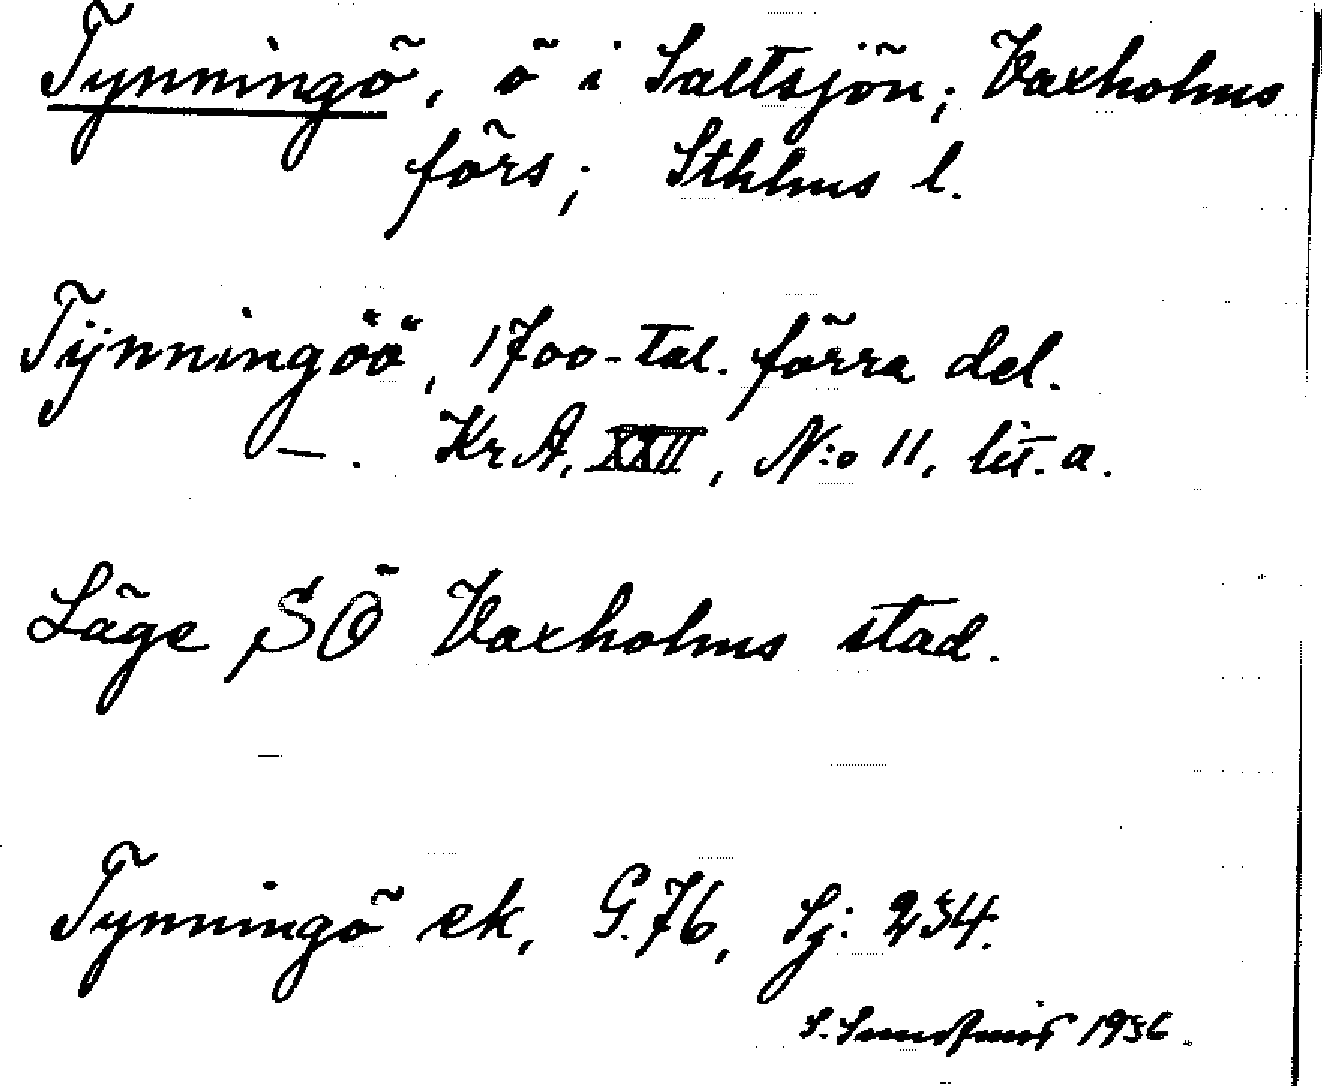 Tynningö, ö i Saltsjön; Vaxholms
förs; Sthlms l.
Tÿnningöö, 1700-tal. förra del.
—. Kr A, XXII, N:o 11, lit. a.
Läge SÖ Vaxholms stad.
Tynningö ek, G. 76, Sj: 234.
1936